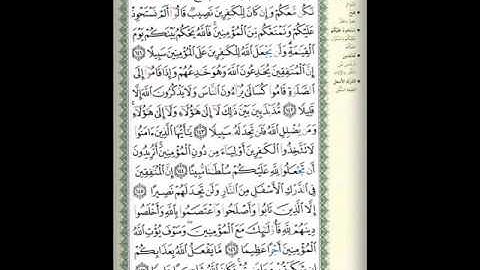 نَكُن مَّعَكُمْ وَإِن كَانَ لِلْكَافِرِينَ نَصِيبٌ قَالُوٓا۟ أَلَمْ نَسْتَحْوِذْ
عَلَيْكُمْ وَنَمْنَعْكُم مِّنَ ٱلْمُؤْمِنِينَ فَٱللَّهُ يَحْكُمُ بَيْنَكُمْ يَوْمَ
ٱلْقِيَٰمَةِ وَلَن يَجْعَلَ ٱللَّهُ لِلْكَٰفِرِينَ عَلَى ٱلْمُؤْمِنِينَ سَبِيلًا ١٤١
إِنَّ ٱلْمُنَٰفِقِينَ يُخَٰدِعُونَ ٱللَّهَ وَهُوَ خَٰدِعُهُمْ وَإِذَا قَامُوٓا۟ إِلَى
ٱلصَّلَوٰةِ قَامُوا۟ كُسَالَىٰ يُرَآءُونَ ٱلنَّاسَ وَلَا يَذْكُرُونَ ٱللَّهَ إِلَّا
قَلِيلًا ١٤٢ مُّذَبْذَبِينَ بَيْنَ ذَٰلِكَ لَآ إِلَىٰ هَٰٓؤُلَآءِ وَلَآ إِلَىٰ هَٰٓؤُلَآءِ
وَمَن يُضْلِلِ ٱللَّهُ فَلَن تَجِدَ لَهُۥ سَبِيلًا ١٤٣ يَٰٓأَيُّهَا ٱلَّذِينَ ءَامَنُوا۟
لَا تَتَّخِذُوا۟ ٱلْكَٰفِرِينَ أَوْلِيَآءَ مِن دُونِ ٱلْمُؤْمِنِينَ أَتُرِيدُونَ
أَن تَجْعَلُوا۟ لِلَّهِ عَلَيْكُمْ سُلْطَٰنًا مُّبِينًا ١٤٤ إِنَّ ٱلْمُنَٰفِقِينَ
فِى ٱلدَّرْكِ ٱلْأَسْفَلِ مِنَ ٱلنَّارِ وَلَن تَجِدَ لَهُمْ نَصِيرًا ١٤٥
إِلَّا ٱلَّذِينَ تَابُوا۟ وَأَصْلَحُوا۟ وَٱعْتَصَمُوا۟ بِٱللَّهِ وَأَخْلَصُوا۟
دِينَهُمْ لِلَّهِ فَأُو۟لَٰٓئِكَ مَعَ ٱلْمُؤْمِنِينَ وَسَوْفَ يُؤْتِ ٱللَّهُ
ٱلْمُؤْمِنِينَ أَجْرًا عَظِيمًا ١٤٦ مَّا يَفْعَلُ ٱللَّهُ بِعَذَابِكُمْ